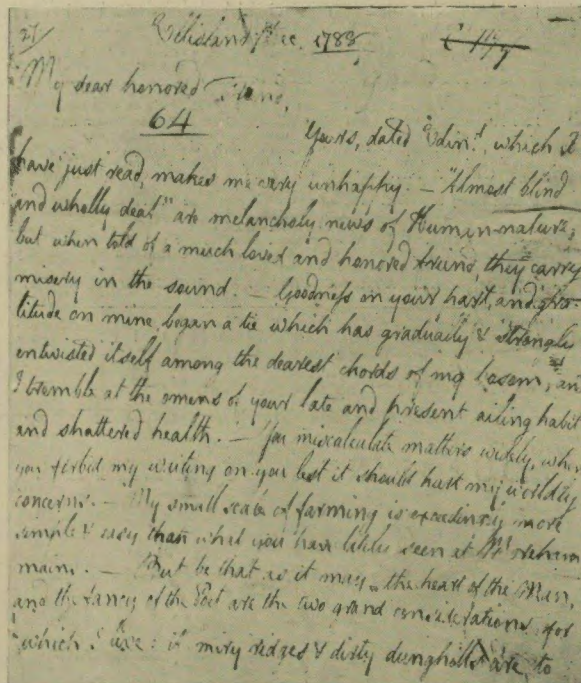 27
Ellisland 7th Dec. 1788
My dear honored Friend,
64
Yours, dated Edinr. which I
have just read, makes me very unhappy. — "Almost blind
and wholly deaf" are melancholy news of Human-nature;
but when told of a much loved and honored friend, they carry
misery in the sound. — Goodness on your part, and gra-
titude on mine, began a tie which has gradually & strongly
entwisted itself among the dearest chords of my bosom; and
I tremble at the omens of your late and present ailing habit
and shattered health. — You miscalculate matters widely, when
you forbid my waiting on you lest it should hurt my worldly
concerns. — My small scale of farming is exceedingly more
simple & easy than what you have lately seen at
mains. — But be that as it may, the heart of the Man,
and the fancy of the Poet are the two grand considerations for
which I live: if miry ridges & dirty dunghills are to